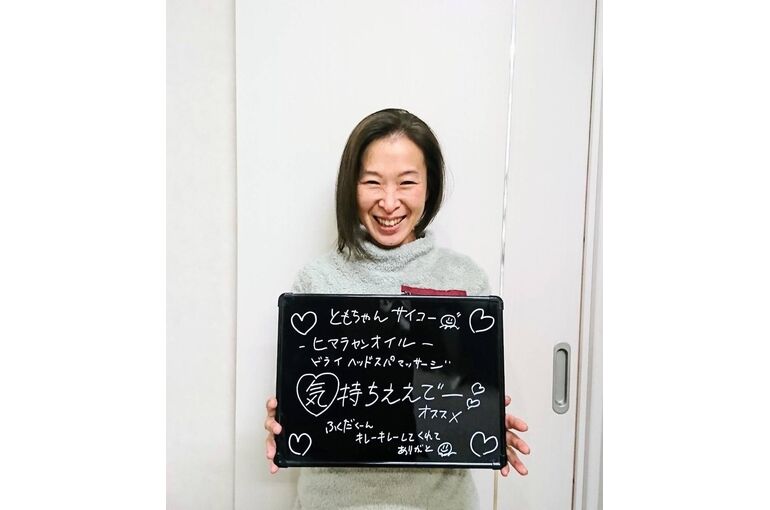 ともちゃん サイコー
- ヒマラヤンオイル -
ドライ ヘッドスパ マッサージ
気持ちええでー
オススメ
ふくだくーん
キレーキレーしてくれて
ありがと